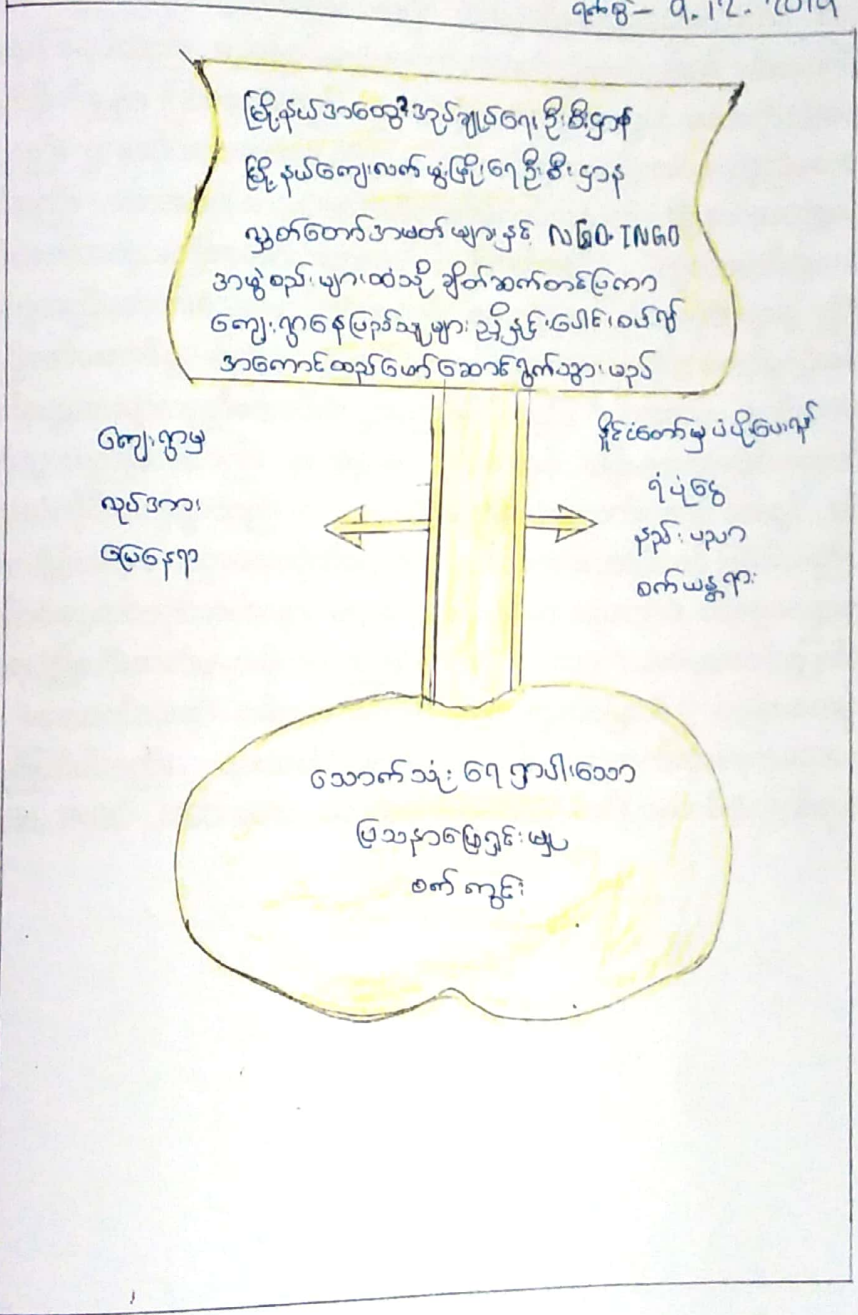 ရက်စွဲ - 9.12.2019
မြို့နယ်အထွေထွေအုပ်ချုပ်ရေးဦးစီးဌာန
မြို့နယ်ကျေးလက်ဖွံ့ဖြိုးရေဦးစီးဌာန
လွှတ်တော်အမတ်များနှင့် NGO. INGO
အဖွဲ့စည်းများထံသို့ ချိတ်ဆက်တင်ပြကာ
ကျေးရွာနေပြည်သူများ ညှိနှိုင်းပေါင်းစပ်၍
အကောင်ထည်ဖော်ဆောင်ရွက်သွားမည်
ကျေးရွာမှ
လုပ်အား
မြေနေရာ
နိုင်ငံတော်မှ ပံ့ပိုးပေးရန်
ရံပုံငွေ
နည်းပညာ
စက်ယန္တရား
သောက်သုံးရေရှားပါးသော
ပြသနာဖြေရှင်းမှု
စက်ကွင်း